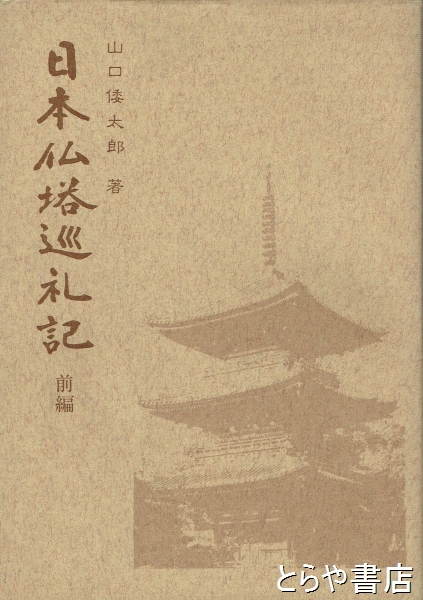 山口倭太郎 著
日本仏塔巡礼記
前編
とらや書店